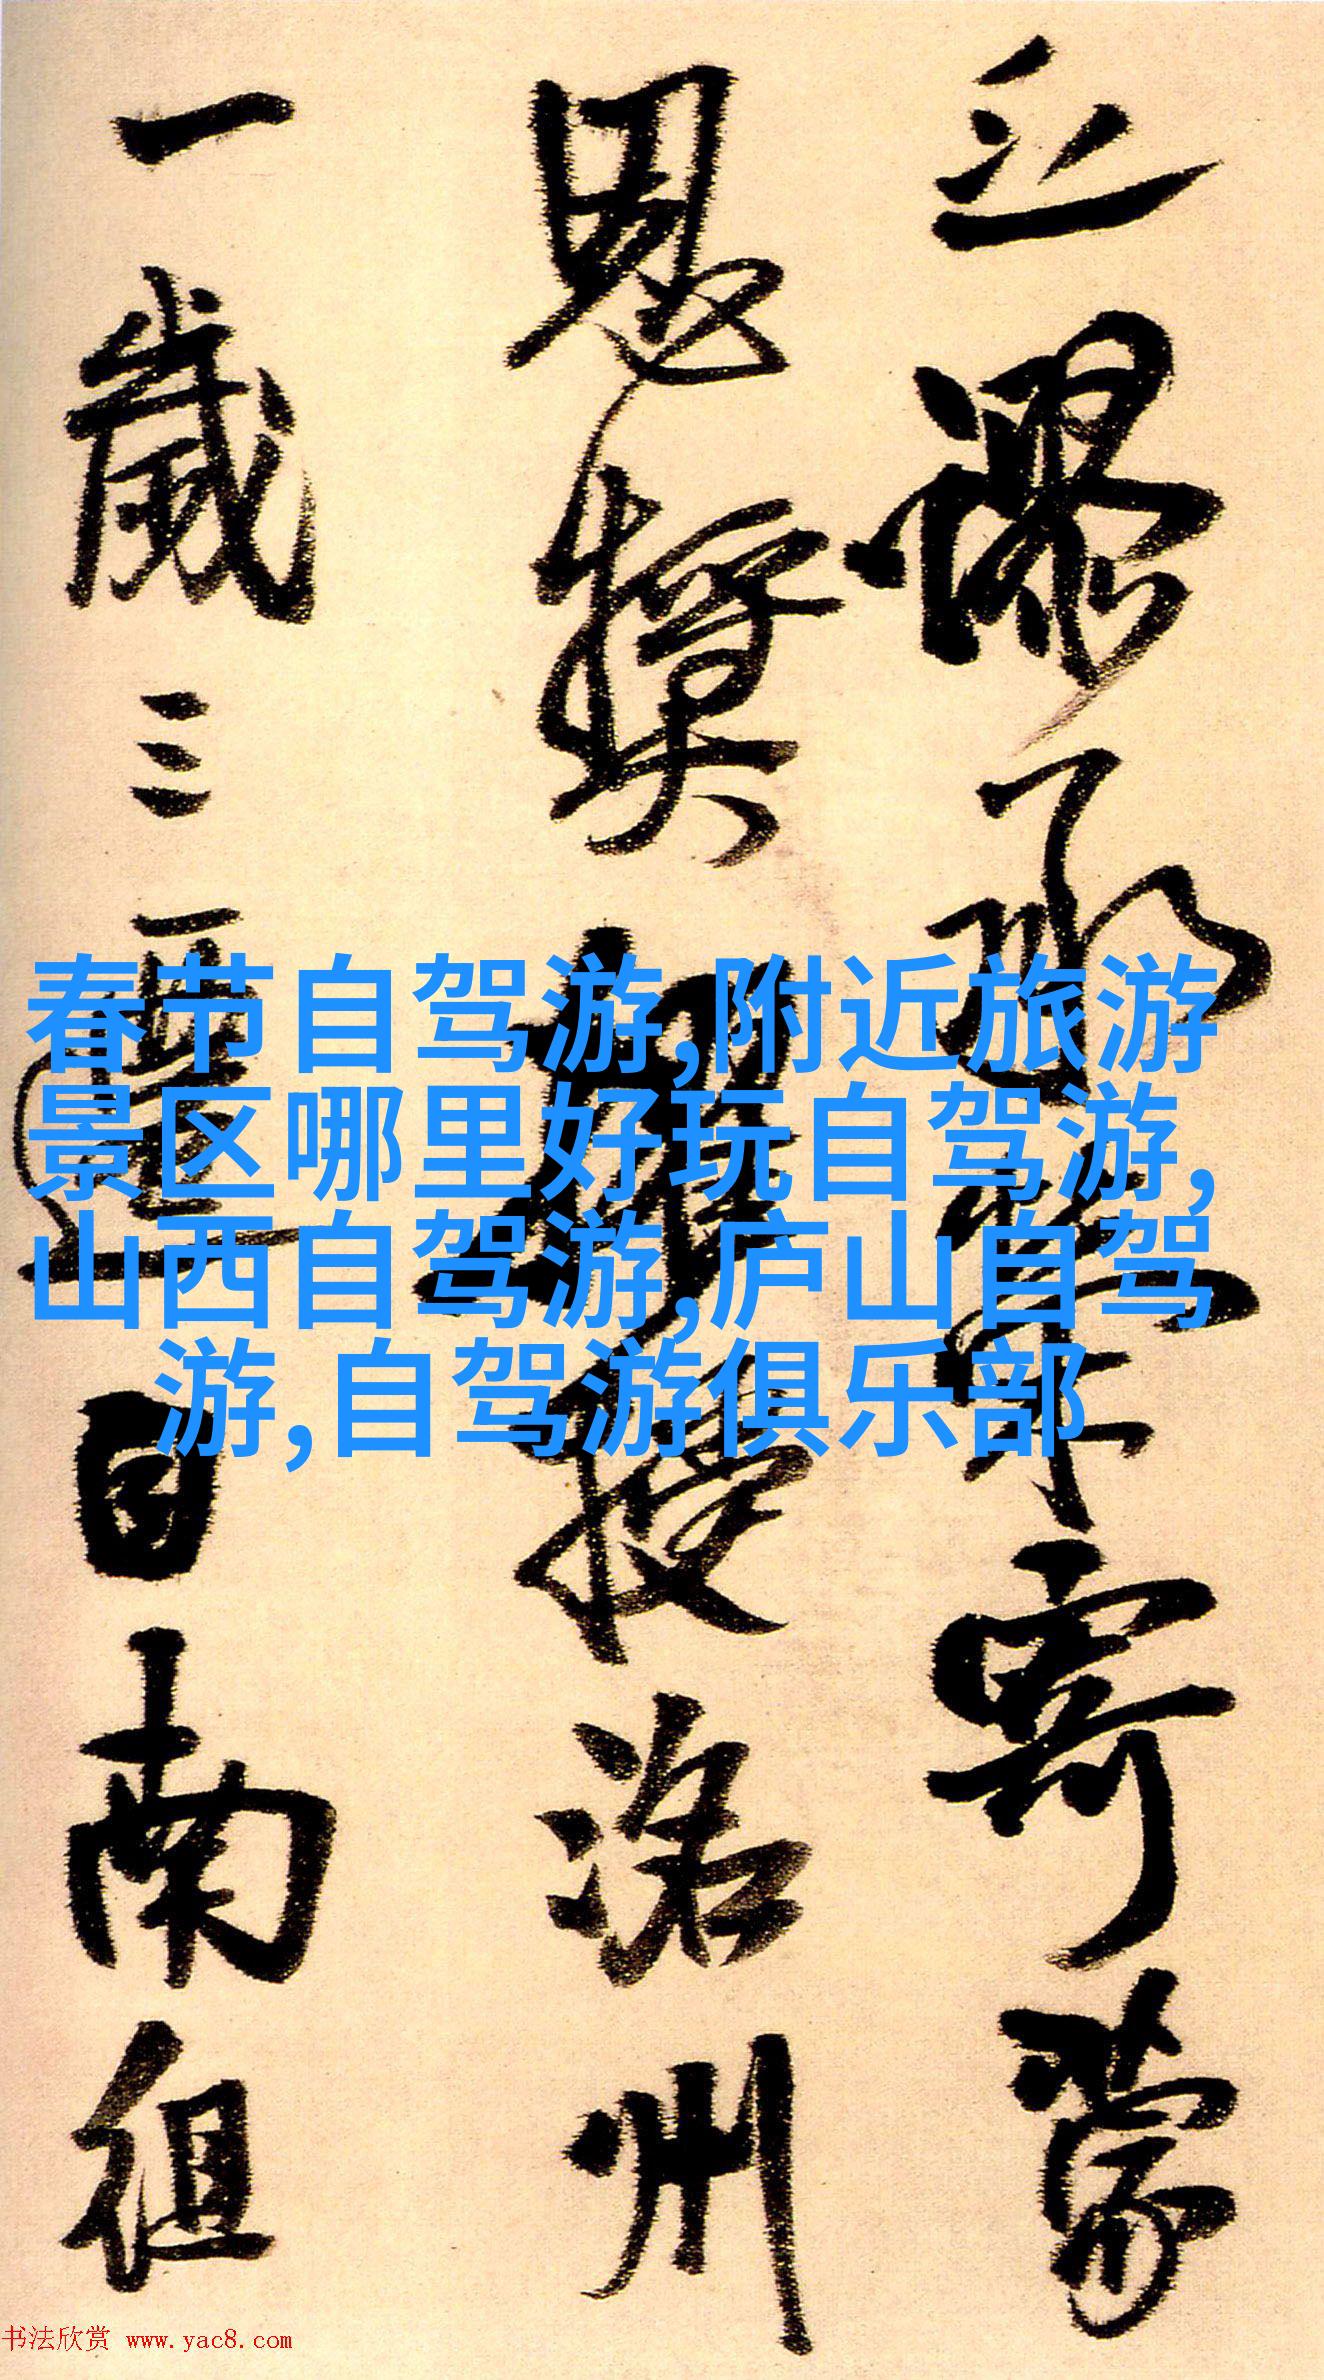 之謬承榮寄蒙
恩獎擢授洺州
一歲三遷自南徂
春节自驾游,附近旅游
景区哪里好玩自驾游,
山西自驾游,庐山自驾
游,自驾游俱乐部
书法欣赏 www.yac8.com